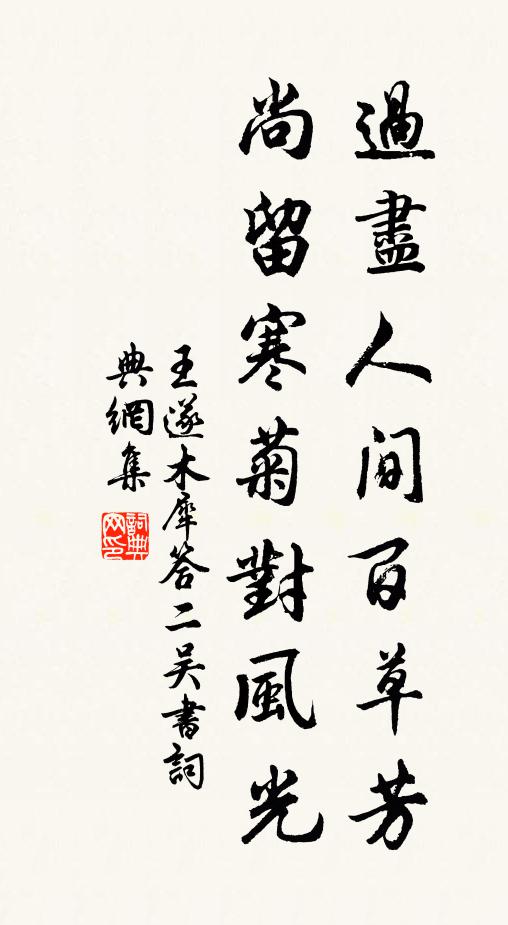 過盡人間百草芳
尚留寒菊對風光
王遂木犀答二吴書詞
典網集
詞典
网印